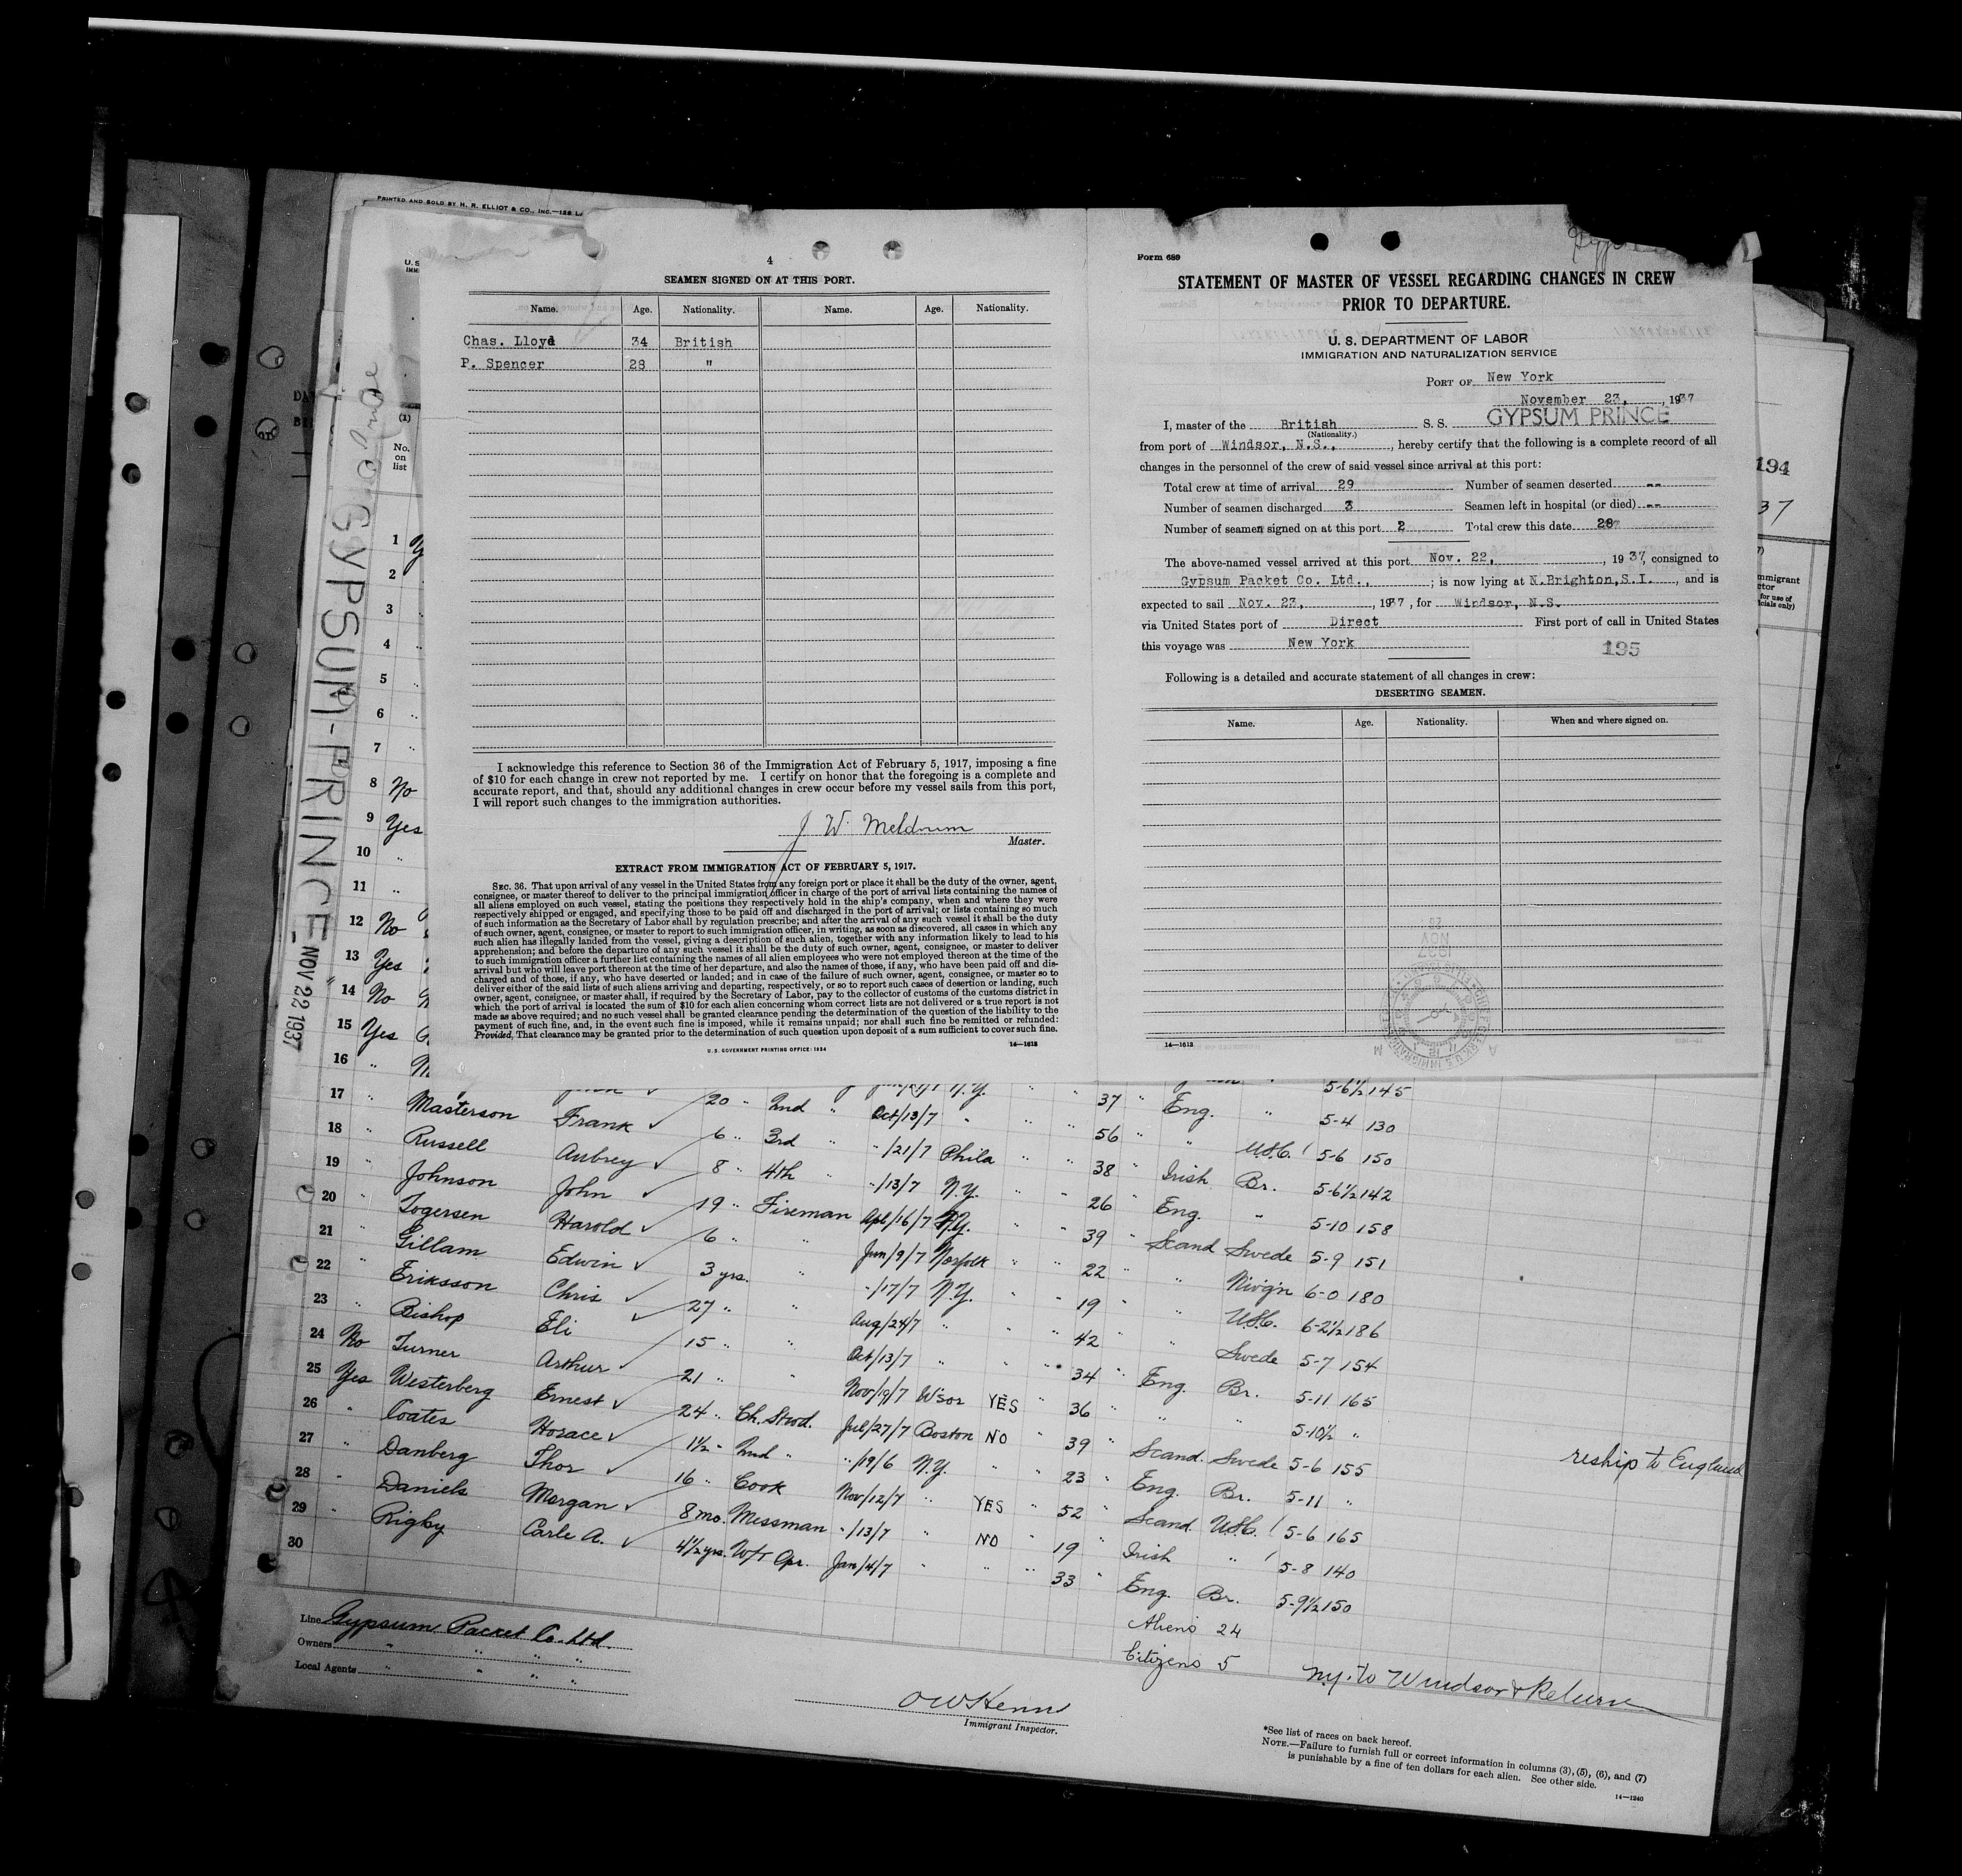 PRINTED AND SOLD BY H. R. ELLIOT & CO., INC.—128 LA
4
SEAMEN SIGNED ON AT THIS PORT.
Name. Age. Nationality. Name. Age. Nationality.
Chas. Lloyd 34 British
P. Spencer 28 "
I acknowledge this reference to Section 36 of the Immigration Act of February 5, 1917, imposing a fine
of $10 for each change in crew not reported by me. I certify on honor that the foregoing is a complete and
accurate report, and that, should any additional changes in crew occur before my vessel sails from this port,
I will report such changes to the immigration authorities.
J W Meldrum
Master.
EXTRACT FROM IMMIGRATION ACT OF FEBRUARY 5, 1917.
SEC. 36. That upon arrival of any vessel in the United States from any foreign port or place it shall be the duty of the owner, agent,
consignee, or master thereof to deliver to the principal immigration officer in charge of the port of arrival lists containing the names of
all aliens employed on such vessel, stating the positions they respectively hold in the ship's company, when and where they were
respectively shipped or engaged, and specifying those to be paid off and discharged in the port of arrival; or lists containing so much
of such information as the Secretary of Labor shall by regulation prescribe; and after the arrival of any such vessel it shall be the duty
of such owner, agent, consignee, or master to report to such immigration officer, in writing, as soon as discovered, all cases in which any
such alien has illegally landed from the vessel, giving a description of such alien, together with any information likely to lead to his
apprehension; and before the departure of any such vessel it shall be the duty of such owner, agent, consignee, or master to deliver
to such immigration officer a further list containing the names of all alien employees who were not employed thereon at the time of the
arrival but who will leave port thereon at the time of her departure, and also the names of those, if any, who have been paid off and dis-
charged and of those, if any, who have deserted or landed; and in case of the failure of such owner, agent, consignee, or master so to
deliver either of the said lists of such aliens arriving and departing, respectively, or so to report such cases of desertion or landing, such
owner, agent, consignee, or master shall, if required by the Secretary of Labor, pay to the collector of customs of the customs district in
which the port of arrival is located the sum of $10 for each alien concerning whom correct lists are not delivered or a true report is not
made as above required; and no such vessel shall be granted clearance pending the determination of the question of the liability to the
payment of such fine, and, in the event such fine is imposed, while it remains unpaid; nor shall such fine be remitted or refunded:
Provided, That clearance may be granted prior to the determination of such question upon deposit of a sum sufficient to cover such fine.
U. S. GOVERNMENT PRINTING OFFICE: 1934 14—1613
Form 689
STATEMENT OF MASTER OF VESSEL REGARDING CHANGES IN CREW
PRIOR TO DEPARTURE.
U. S. DEPARTMENT OF LABOR
IMMIGRATION AND NATURALIZATION SERVICE
PORT OF New York
November 23, , 1937
I, master of the British S. S. GYPSUM PRINCE
(Nationality.)
from port of Windsor, N.S., , hereby certify that the following is a complete record of all
changes in the personnel of the crew of said vessel since arrival at this port:
Total crew at time of arrival 29 Number of seamen deserted --
Number of seamen discharged 3 Seamen left in hospital (or died) --
Number of seamen signed on at this port 2 Total crew this date 28
The above-named vessel arrived at this port Nov. 22, , 1937, consigned to
Gypsum Packet Co. Ltd., ; is now lying at N.Brighton,S.I. , and is
expected to sail Nov. 23, , 1937, for Windsor, N.S.
via United States port of Direct First port of call in United States
this voyage was New York
195
Following is a detailed and accurate statement of all changes in crew:
DESERTING SEAMEN.
Name. Age. Nationality. When and where signed on.
14—1613
194
37
GYPSUM-PRINCE NOV 22 1937
(1)
No. on list
1
2
3
4
5
6
7
8 No
9 Yes
10 "
11 "
12 No
13 Yes
14 No
15 Yes
16 "
5-6½ 145
17 " Masterson Frank 20 " 2nd " Oct/13/7 " " " 37 " Eng. " 5-4 130
18 " Russell Aubrey 6 " 3rd " "/21/7 Phila " " 56 " " U.S.C. 5-6 150
19 " Johnson John 8 " 4th " "/13/7 N.Y. " " 38 " Irish Br. 5-6½ 142
20 " Togersen Harold 19 " Fireman Apl/16/7 N.Y. " " 26 " Eng. " 5-10 158
21 " Gillam Edwin 6 " " Jun/9/7 Norfolk " " 39 " Scand Swede 5-9 151
22 " Eriksson Chris 3 yrs. " "/17/7 N.Y. " " 22 " " Nivig'n 6-0 180
23 " Bishop Eli 27 " " Aug/24/7 " " " 19 " " U.S.C. 6-2½ 186
24 No Turner Arthur 15 " " Oct/13/7 " " " 42 " " Swede 5-7 154
25 Yes Westerberg Ernest 21 " " Nov/19/7 W'sor YES " 34 " Eng. Br. 5-11 165
26 " Coates Horace 24 " Ch. Stwd. Jul/27/7 Boston NO " 36 " " " 5-10½ "
27 " Danberg Thor 1½ " 2nd " "/19/6 N.Y. " " 39 " Scand. Swede 5-6 155 reship to England
28 " Daniels Morgan 16 " Cook Nov/12/7 " YES " 23 " Eng. Br. 5-11 "
29 " Rigby Carle A. 8 mo. Messman "/13/7 " NO " 52 " Scand. U.S.C. 5-6 165
30 4½ yrs. W/T Opr. Jan/4/7 " " " 19 " Irish " 5-8 140
33 " Eng. Br. 5-9½ 150
Aliens 24
Citizens 5
N.Y. to Windsor & Return
Line Gypsum Packet Co. Ltd.
Owners " " " "
Local Agents " " " "
Immigrant Inspector.
*See list of races on back hereof.
NOTE.—Failure to furnish full or correct information in columns (3), (5), (6), and (7)
is punishable by a fine of ten dollars for each alien. See other side.
14—1240